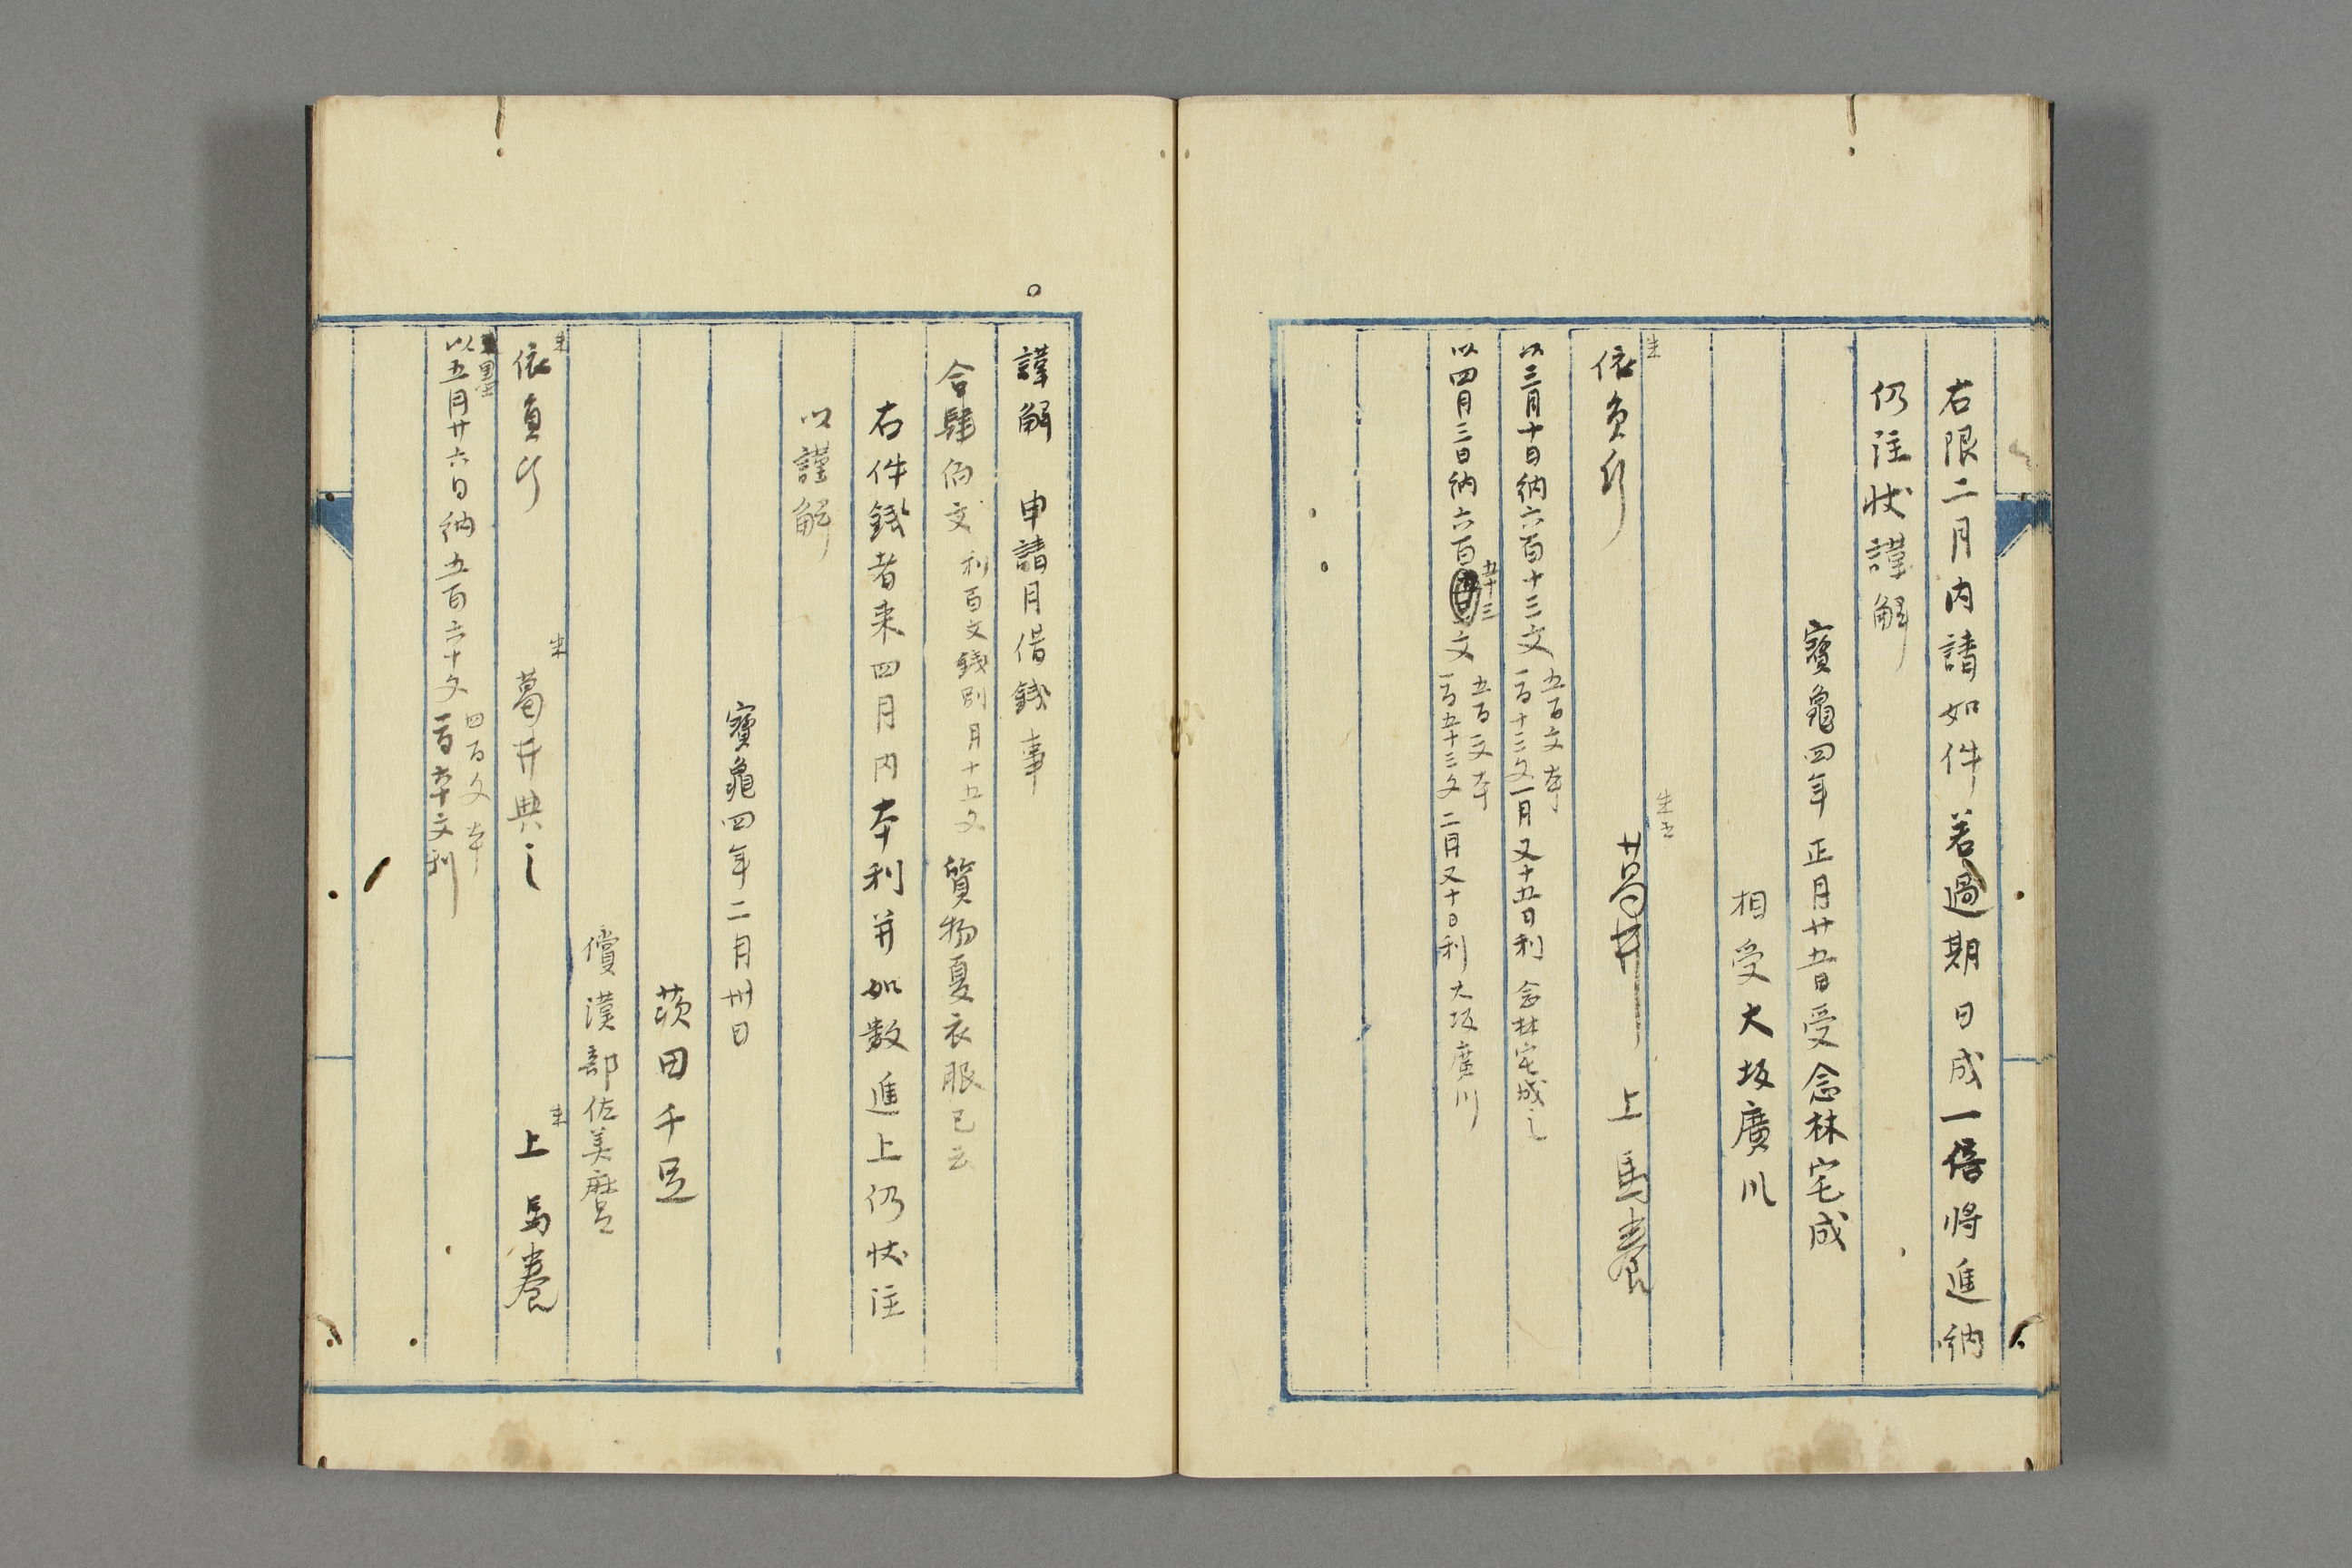 右限二月内請如件若過期日成一倍将進納
仍注状謹解
寶龜四年正月廿五日受念林宅成
相受大坂廣川
朱
依員行
葛井
上馬養
以三月十日納六百十三文 五百文本 一百十三文一月又十五日利 念林宅成之
以四月三日納六百五十三文 五百文本 一百五十三文二月又十日利 大坂廣川
謹解 申請月借錢事
合肆佰文 利百文錢別月十五文 質物夏衣服已云
右件錢者来四月内本利并如数進上仍状注
以謹解
寶龜四年二月卅日
茨田千足
償漢部佐美麿
朱
依員行
朱
葛井典之
朱
上馬養
墨
以五月廿六日納五百六十文 四百文本 一百六十文利